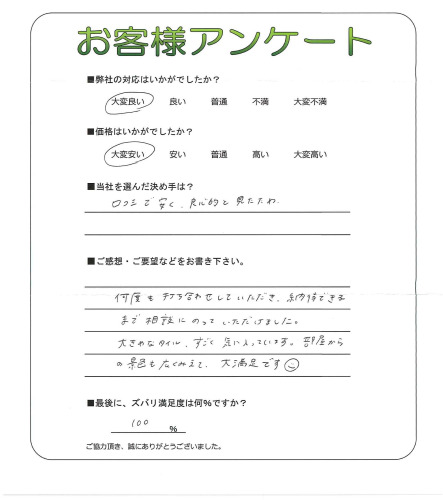 お客様アンケート
■弊社の対応はいかがでしたか？
大変良い 良い 普通 不満 大変不満
■価格はいかがでしたか？
大変安い 安い 普通 高い 大変高い
■当社を選んだ決め手は？
口コミで安く、良心的と見たため
■ご感想・ご要望などをお書き下さい。
何度も打ち合わせしていただき、納得できる
まで相談にのっていただけました。
大きなタイル、すごく気に入っています。部屋から
の景色も広くみえて、大満足です
■最後に、ズバリ満足度は何%ですか？
100 %
ご協力頂き、誠にありがとうございました。